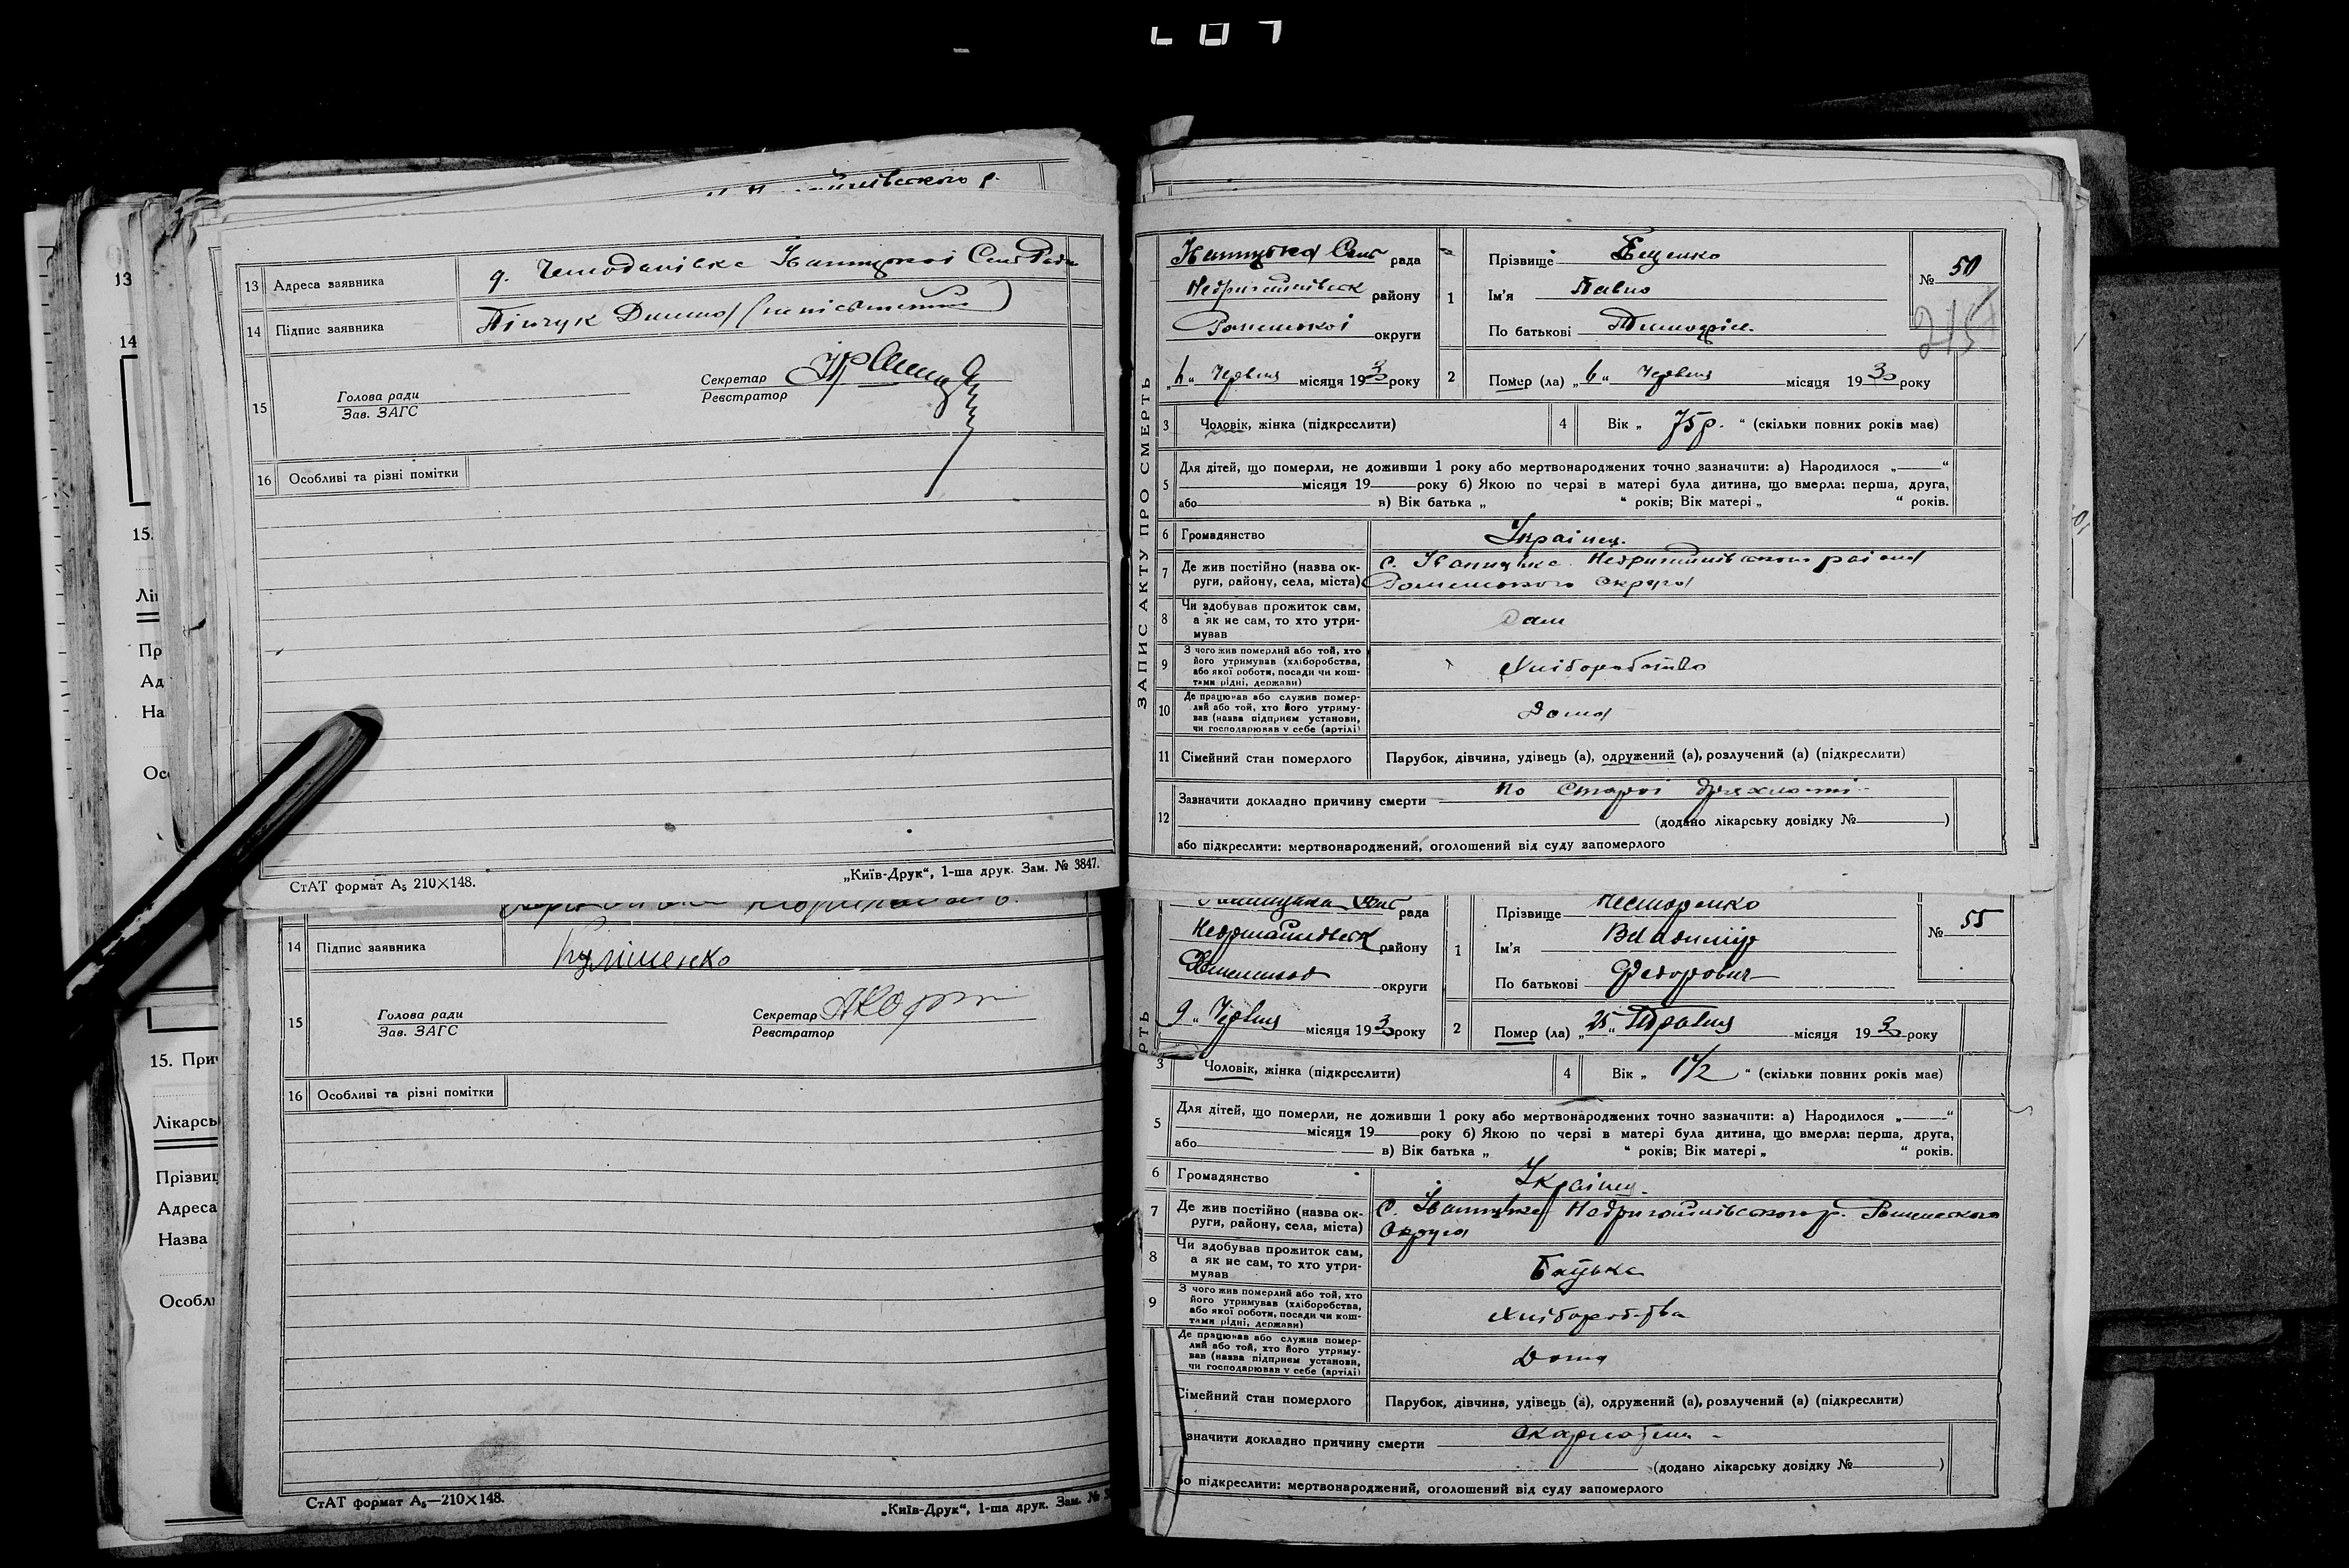 13 Адреса заявника
14 Підпис заявника
15 Голова ради
Зав. ЗАГС
Секретар
Реєстратор
16 Особливі та різні помітки
СтАТ формат А₅ 210×148.
„Київ-Друк“, 1-ша друк. Зам. № 3847.
14 Підпис заявника Кулішенко
15 Голова ради
Зав. ЗАГС
Секретар
Реєстратор
16 Особливі та різні помітки
СтАТ формат А₅—210×148.
„Київ-Друк“, 1-ша друк. Зам. №
13
14
15.
Лі
Пр
Ад
На
Ос
15. При
Лікарсь
Прізвищ
Адреса
Назва
Особл
ЗАПИС АКТУ ПРО СМЕРТЬ
рада
району
округи
„6“ Червня місяця 1930 року
1 Прізвище
Ім'я Павло
По батькові
№ 50
215
2 Помер (ла) „6“ Червня місяця 1930 року
3 Чоловік, жінка (підкреслити)
4 Вік „ 75 р. “ (скільки повних років має)
5 Для дітей, що померли, не доживши 1 року або мертвонароджених точно зазначити: а) Народилося „ “
місяця 19 року б) Якою по черзі в матері була дитина, що вмерла: перша, друга,
або в) Вік батька „ “ років; Вік матері „ “ років.
6 Громадянство Українец.
7 Де жив постійно (назва ок-
руги, району, села, міста)
с. Іваницьке Недригайлівського району
Роменського округу
8 Чи здобував прожиток сам,
а як не сам, то хто утри-
мував
Сам
9 З чого жив померлий або той, хто
його утримував (хліборобства,
або якої роботи, посади чи кош-
тами рідні, держави)
Хліборобство
10 Де працював або служив помер-
лий або той, хто його утриму-
вав (назва підприєм установи,
чи господарював у себе (артілі)
Дома
11 Сімейний стан померлого Парубок, дівчина, удівець (а), одружений (а), розлучений (а) (підкреслити)
12 Зазначити докладно причину смерти по старої дряхлости
(додано лікарську довідку № )
або підкреслити: мертвонароджений, оголошений від суду запомерлого
РТЬ
рада
району
округи
9 „ Червня місяця 1930 року
1 Прізвище Несторенко
Ім'я Владимір
По батькові Федорович
№ 55
2 Помер (ла) „25“ Травня місяця 1930 року
3 Чоловік, жінка (підкреслити)
4 Вік „ 1½ “ (скільки повних років має)
5 Для дітей, що померли, не доживши 1 року або мертвонароджених точно зазначити: а) Народилося „ “
місяця 19 року б) Якою по черзі в матері була дитина, що вмерла: перша, друга,
або в) Вік батька „ “ років; Вік матері „ “ років.
6 Громадянство Українец.
7 Де жив постійно (назва ок-
руги, району, села, міста)
с. Іваницьке Недригайлівського р. Роменського
округу
8 Чи здобував прожиток сам,
а як не сам, то хто утри-
мував
Батько
9 З чого жив померлий або той, хто
його утримував (хліборобства,
або якої роботи, посади чи кош-
тами рідні, держави)
Хліборобства
Де працював або служив помер-
лий або той, хто його утриму-
вав (назва підприєм установи,
чи господарював у себе (артілі)
Дома
Сімейний стан померлого Парубок, дівчина, удівець (а), одружений (а), розлучений (а) (підкреслити)
значити докладно причину смерти скарлатина
(додано лікарську довідку № )
бо підкреслити: мертвонароджений, оголошений від суду запомерлого